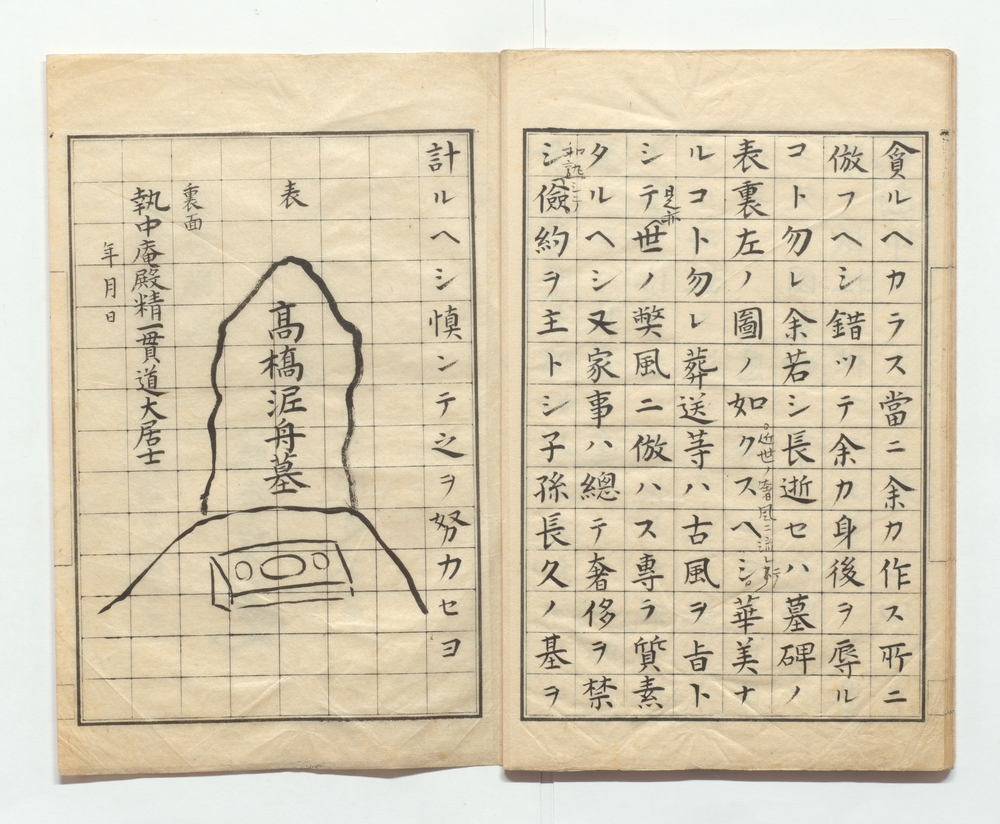 貪ルヘカラス當ニ余カ作ス所ニ
倣フヘシ錯ツテ余カ身後ヲ辱ル
コト勿レ余若シ長逝セハ墓碑ノ
表裏左ノ圖ノ如クスヘシ華美ナ
近世ノ奢風ニ流レ
ルコト勿レ葬送等ハ古風ヲ旨ト
是亦
シテ世ノ弊風ニ倣ハス專ラ質素
タルヘシ又家事ハ總テ奢侈ヲ禁
和
シ儉約ヲ主トシ子孫長久ノ基ヲ
計ルヘシ慎ンテ之ヲ努力セヨ
表
高橋泥舟墓
裏面
執中庵殿精一貫道大居士
年月日